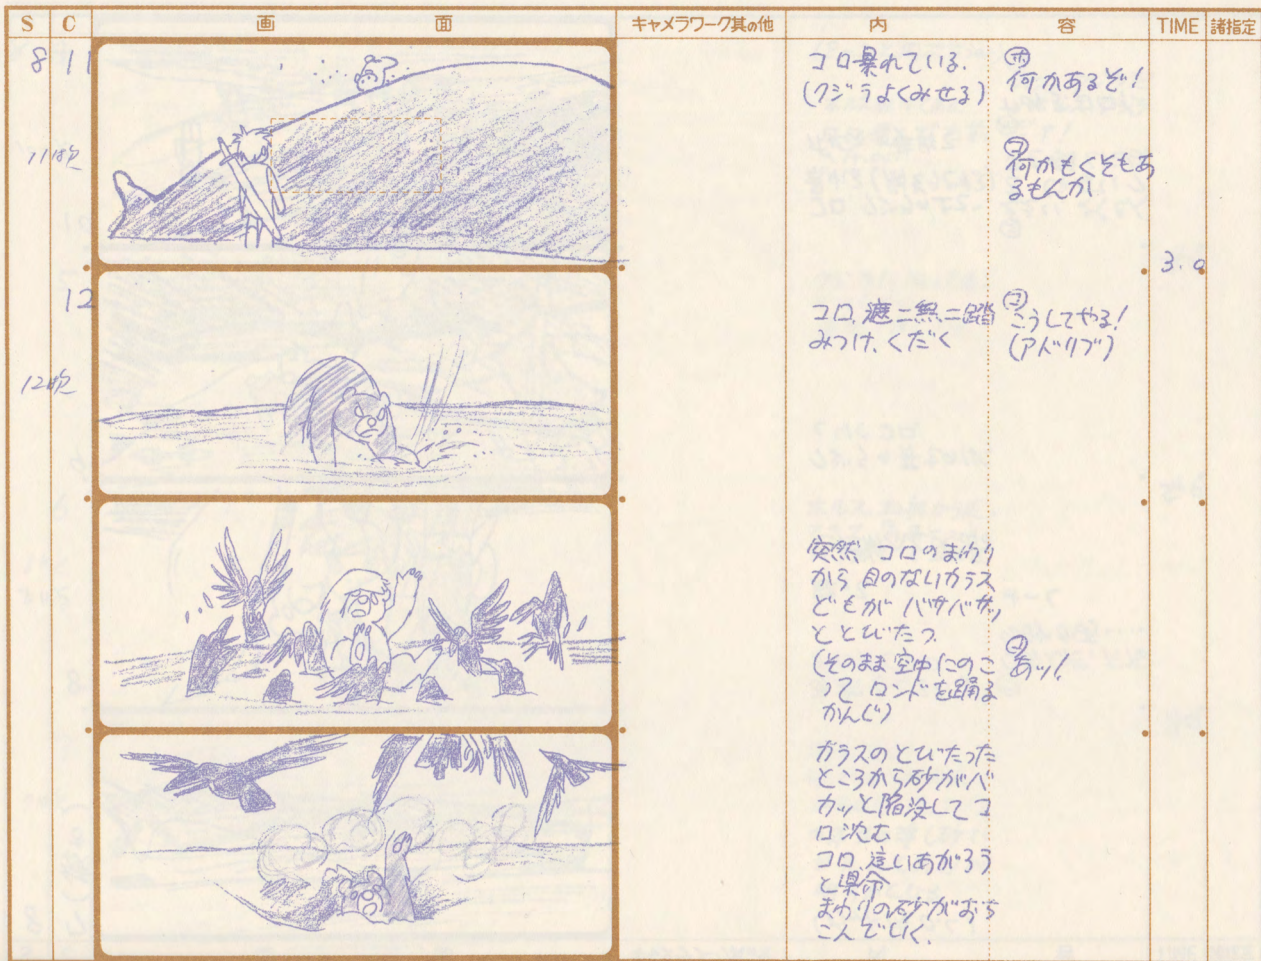 S C 画面 キャメラワーク其の他 内容 TIME 諸指定
8 11
コロ暴れている.
(クジラよくみせる)
㋭
何かあるぞ!
㋙
何かもくそもあ
るもんか
3.0
12
コロ、遮二無二踏
みつけ、くだく
㋙
こうしてやる!
(アドリブ)
突然、コロのまわり
から 目のないカラス
どもが バサバサッ
ととびたつ
(そのまま空中にのこ
って ロンドを踊る
かんじ)
㋙
あッ!
カラスのとびたった
ところから砂がバ
カッと陥没してコ
ロ沈む
コロ、這いあがろう
と県命
まわりの砂がおち
こんでいく.